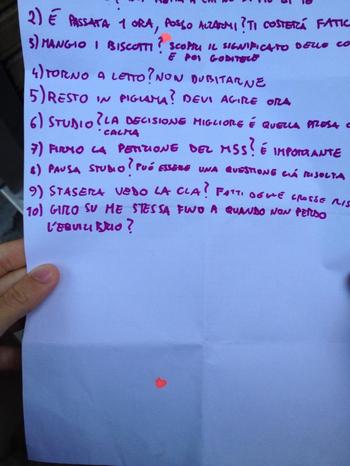 2) È PASSATA 1 ORA, POSSO ALZARMI? TI COSTERÁ FATIC
3) MANGIO I BISCOTTI? SCOPRI IL SIGNIFICATO DELLE CO
E POI GODITELE
4) TORNO A LETTO? NON DUBITARNE
5) RESTO IN PIGIAMA? DEVI AGIRE ORA
6) STUDIO? LA DECISIONE MIGLIORE É QUELLA PRESA C
CALMA
7) FIRMO LA PETIZIONE DEL MSS? É IMPORTANTE
8) PAUSA STUDIO? PUÓ ESSERE UNA QUESTIONE GIÁ RISOLTA
9) STASERA VEDO LA CLA? FATTI DELLE GROSSE RIS
10) GIRO SU ME STESSA FINO A QUANDO NON PERDO
L'EQUILIBRIO?